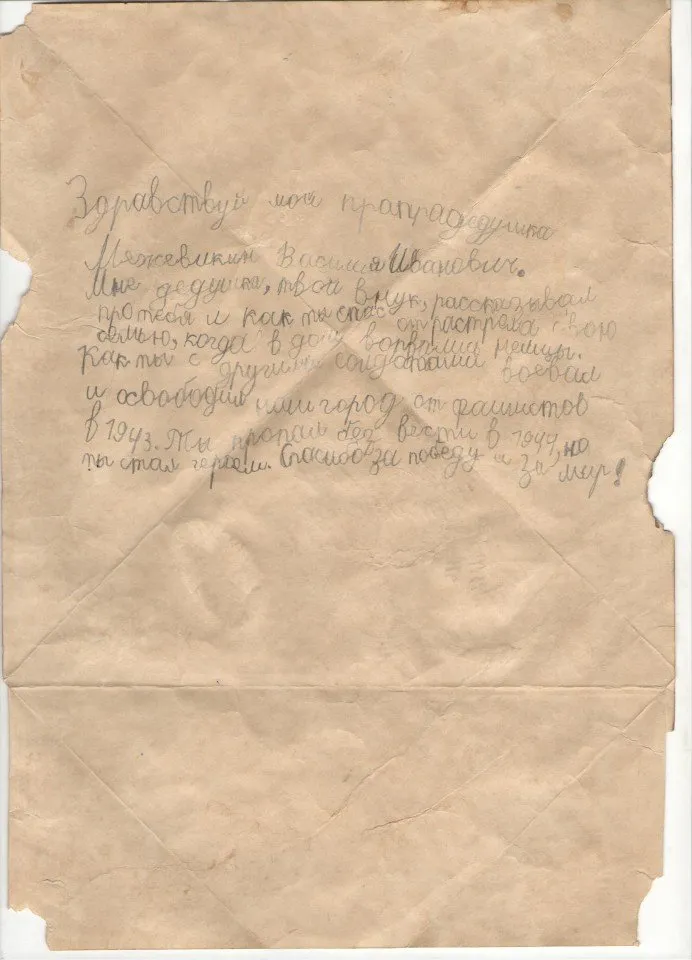 Здравствуй мой прапрадедушка
Мяжевикин Василия Иванович.
Мне дедушка, твой внук, рассказывал
про тебя и как ты спас от растрела свою
семью, когда в дом ворвались немцы.
Как ты с другими солдатами воевал
и освободил наш город от фашистов
в 1943. Ты пропал без вести в 1944, но
ты стал героем. Спасибо за победу и за мир!